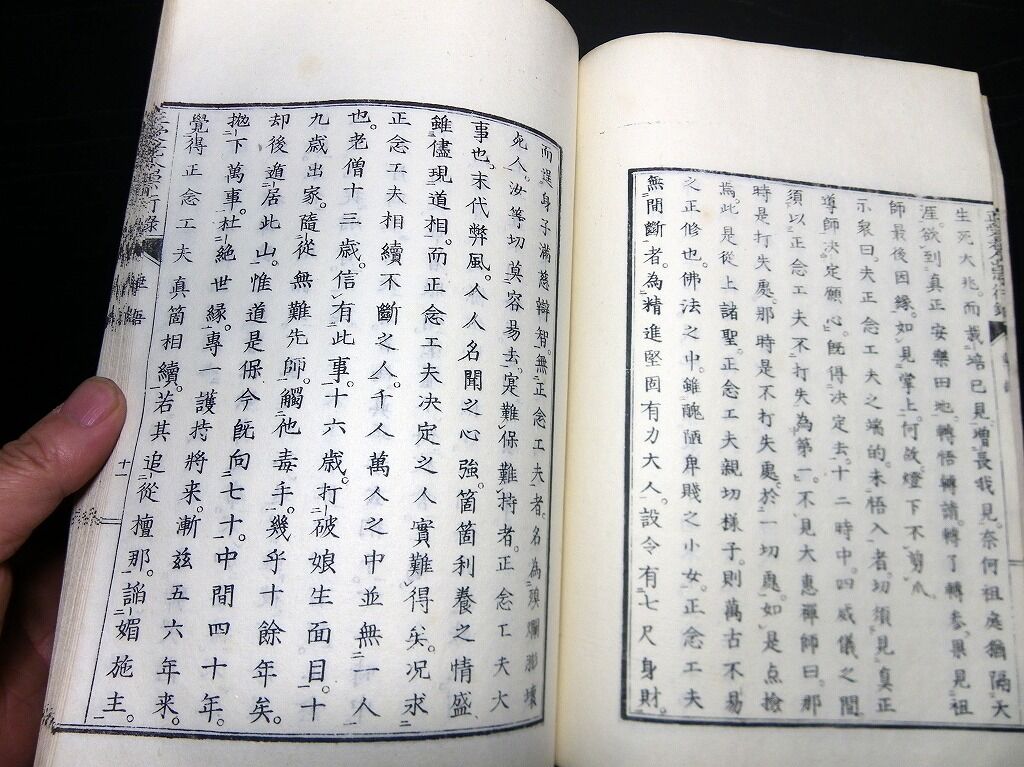 生死大兆而栽培已見增長我見。奈何祖庭猶隔大
涯。欲到真正安樂田地。轉悟轉請。轉了轉參。果見祖
師最後因緣。如見掌上。何故燈下不剪爪。
示衆曰。夫正念工夫之端的。未悟入者。切須見真正
導師決定願心。既得決定去。十二時中。四威儀之間
須以正念工夫不打失為第一。不見大惠禪師曰。那
時是打失處。那時是不打失處。於一切處。如是点撿
焉。此是從上諸聖正念工夫親切樣子。則萬古不易
之正修也。佛法之中。雖醜陋卑賤之小女。正念工夫
無間斷者。為精進堅固有力大人。設令有七尺身財。
而逞身子滿慈辯智。無正念工夫者。名為爛膨壞
死人。汝等切莫容易去。寔難保難持者。正念工夫大
事也。末代弊風。人人名聞之心強。箇箇利養之情盛
雖儘現道相。而正念工夫决定之人。實難得矣。況求
正念工夫相續不斷之人。千人萬人之中並無一人
也。老僧十三歳。信有此事。十六歳。打破娘生面目。十
九歳出家。隨從無難先師。觸他毒手。幾乎十餘年矣。
却後遁居此山。惟道是保今既向七十。中間四十年。
抛下萬事。杜絕世縁。專一護持將來。漸茲五六年來。
覺得正念工夫真箇相續。若其追從檀那。諂媚施主。
垂語
十一